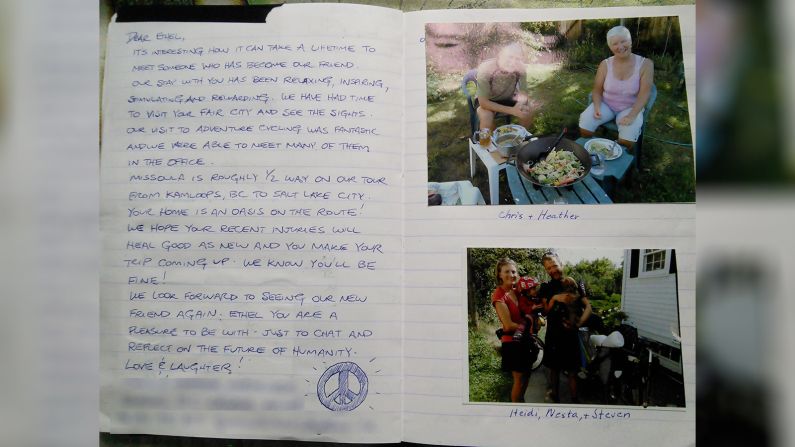 DEAR ETHEL,
ITS INTERESTING HOW IT CAN TAKE A LIFETIME TO
MEET SOMEONE WHO HAS BECOME OUR FRIEND.
OUR STAY WITH YOU HAS BEEN RELAXING, INSPIRING,
STIMULATING AND REWARDING. WE HAVE HAD TIME
TO VISIT YOUR FAIR CITY AND SEE THE SIGHTS.
OUR VISIT TO ADVENTURE CYCLING WAS FANTASTIC
AND WE WERE ABLE TO MEET MANY OF THEM
IN THE OFFICE.
MISSOULA IS ROUGHLY 1/2 WAY ON OUR TOUR
FROM KAMLOOPS, BC TO SALT LAKE CITY.
YOUR HOME IS AN OASIS ON THE ROUTE!
WE HOPE YOUR RECENT INJURIES WILL
HEAL GOOD AS NEW AND YOU MAKE YOUR
TRIP COMING UP. WE KNOW YOU'LL BE
FINE!
WE LOOK FORWARD TO SEEING OUR NEW
FRIEND AGAIN; ETHEL YOU ARE A
PLEASURE TO BE WITH - JUST TO CHAT AND
REFLECT ON THE FUTURE OF HUMANITY.
LOVE & LAUGHTER!
Chris + Heather
Heidi, Nesta, + Steven